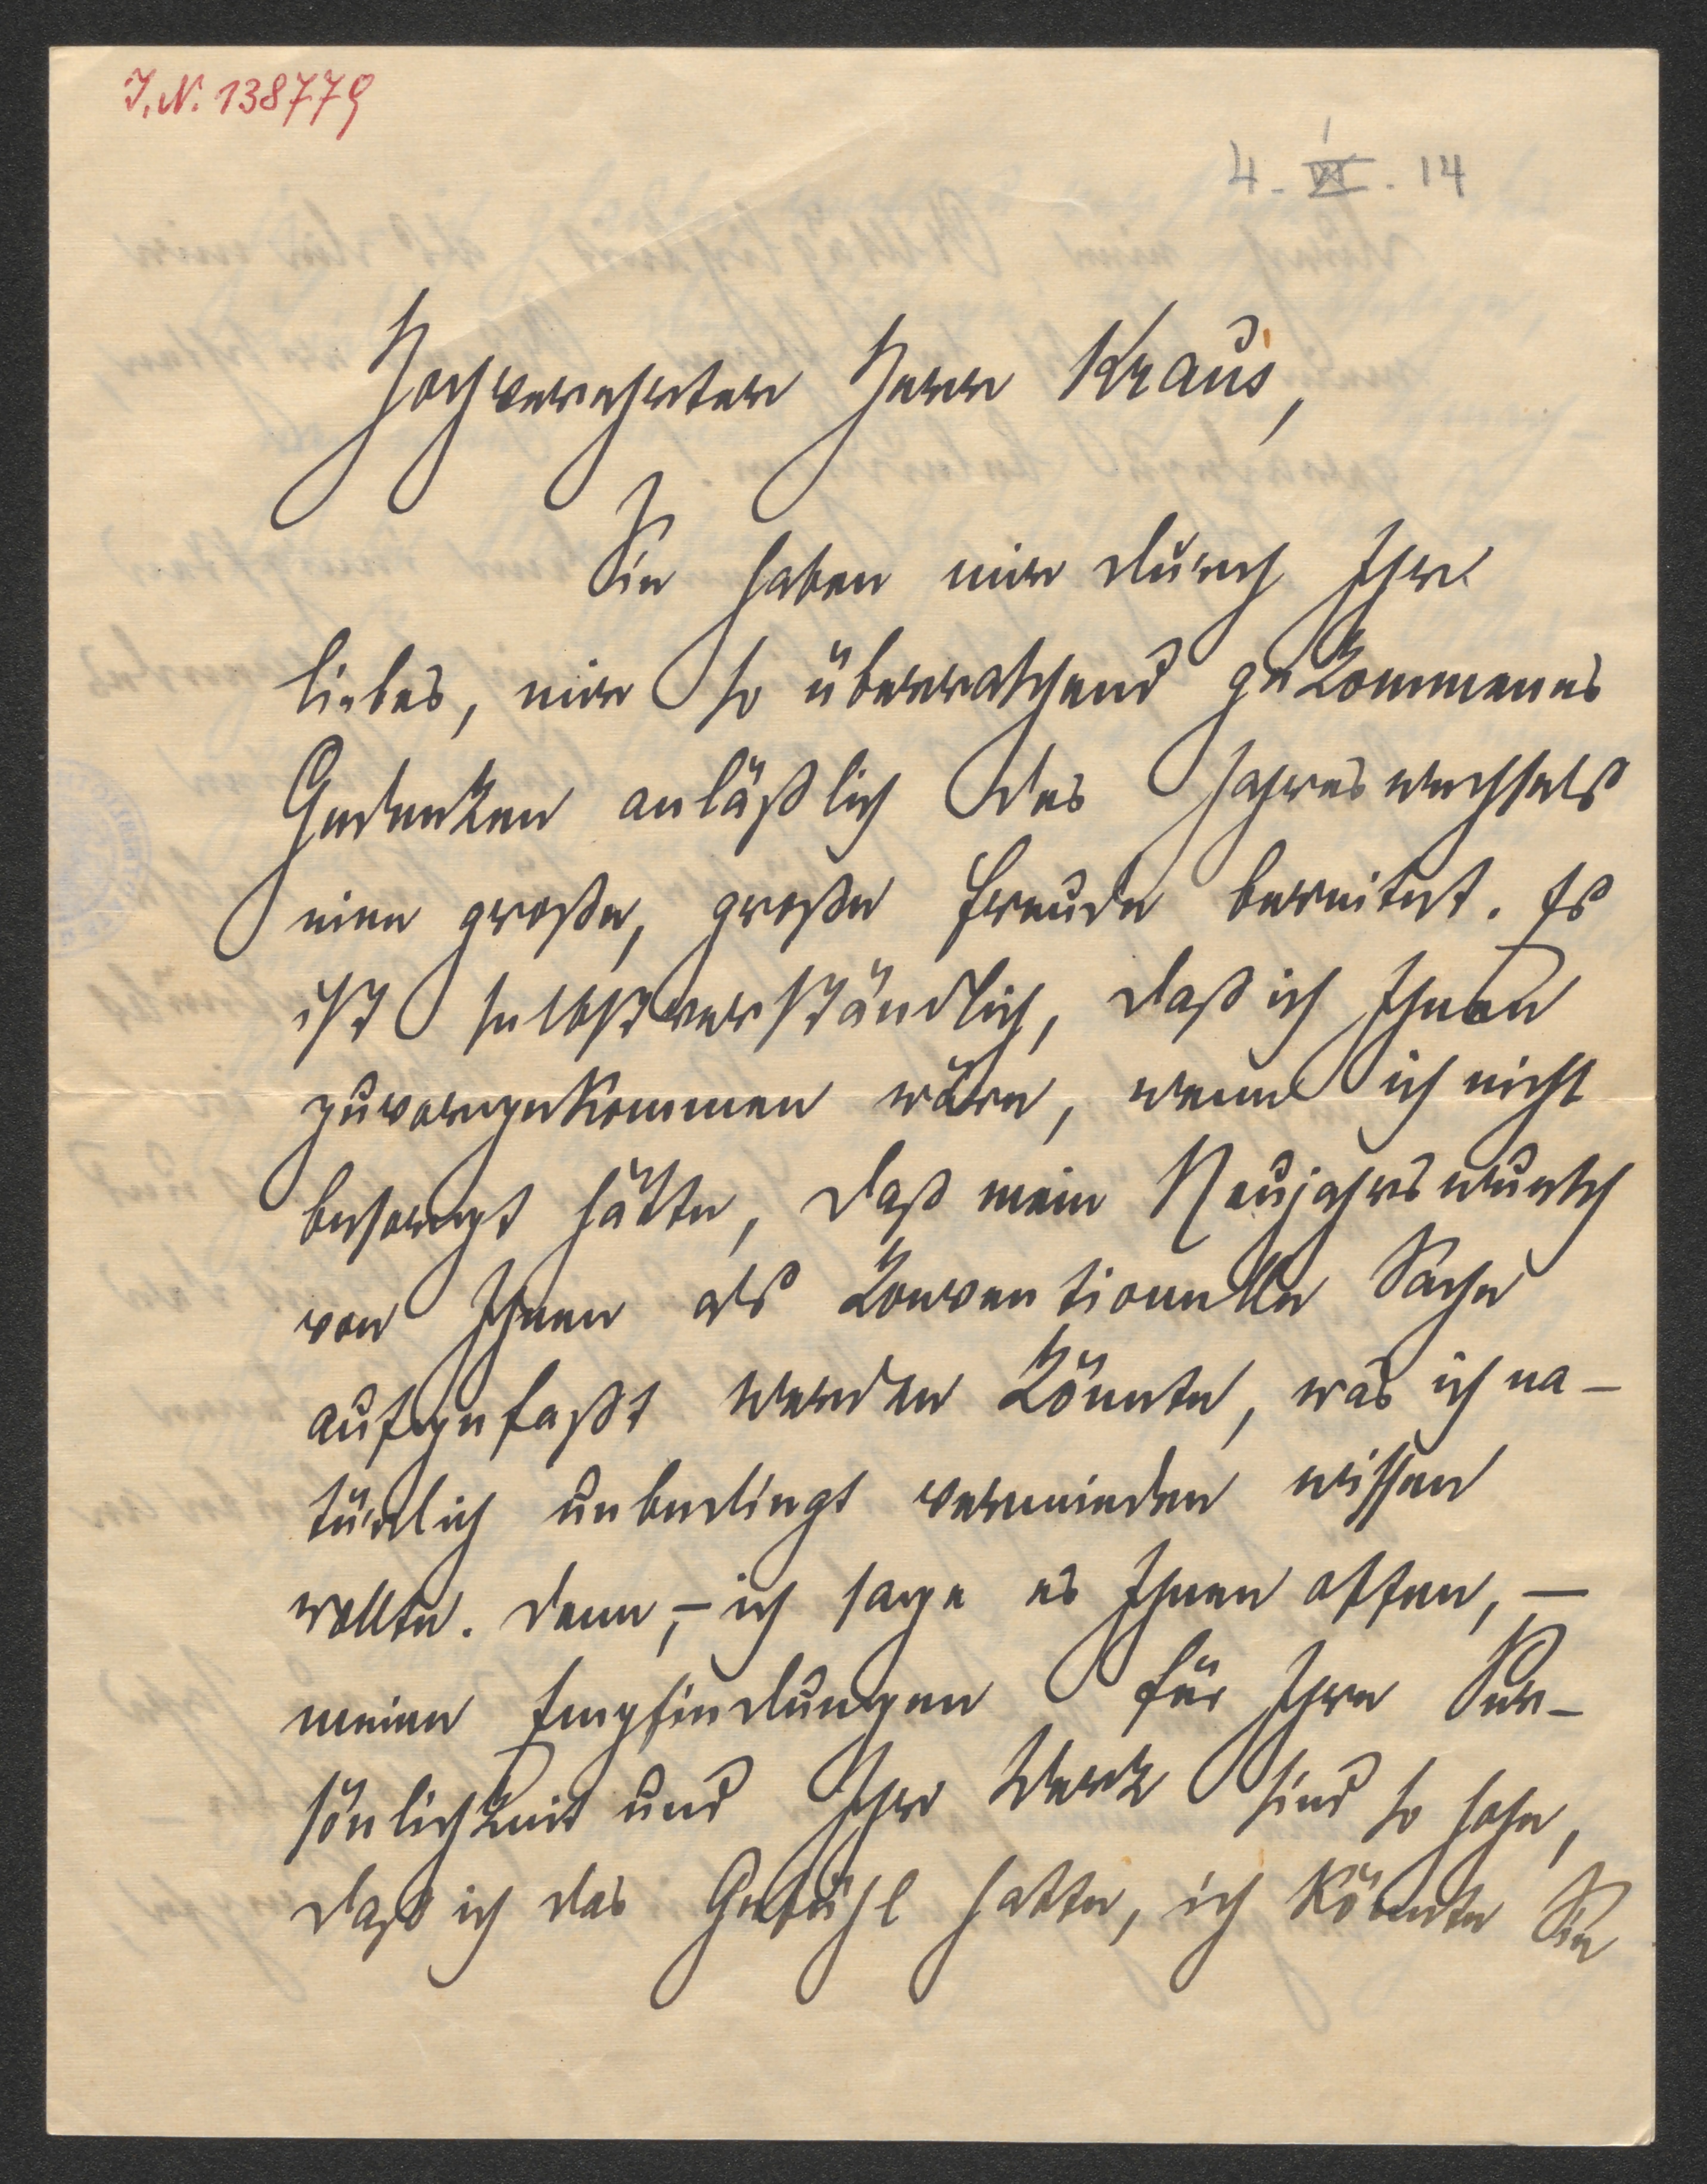 J.N. 138779
4. I. 14
Hochverehrter Herr Kraus,
Sie haben mir durch Ihr
liebes, mir so überraschend gekommenes
Gedenken anläßlich des Jahreswechsels
eine große, große Freude bereitet. Es
ist selbstverständlich, daß ich Ihnen
zuvorgekommen wäre, wenn ich nicht
besorgt hätte, daß mein Neujahrswunsch
von Ihnen als konventionelle Sache
aufgefaßt werden könnte, was ich na-
türlich unbedingt vermieden wissen
wollte. Denn, – ich sage es Ihnen offen, –
meine Empfindungen für Ihre Per-
sönlichkeit und Ihr Werk sind so hohe,
daß ich das Gefühl hatte, ich könnte Sie